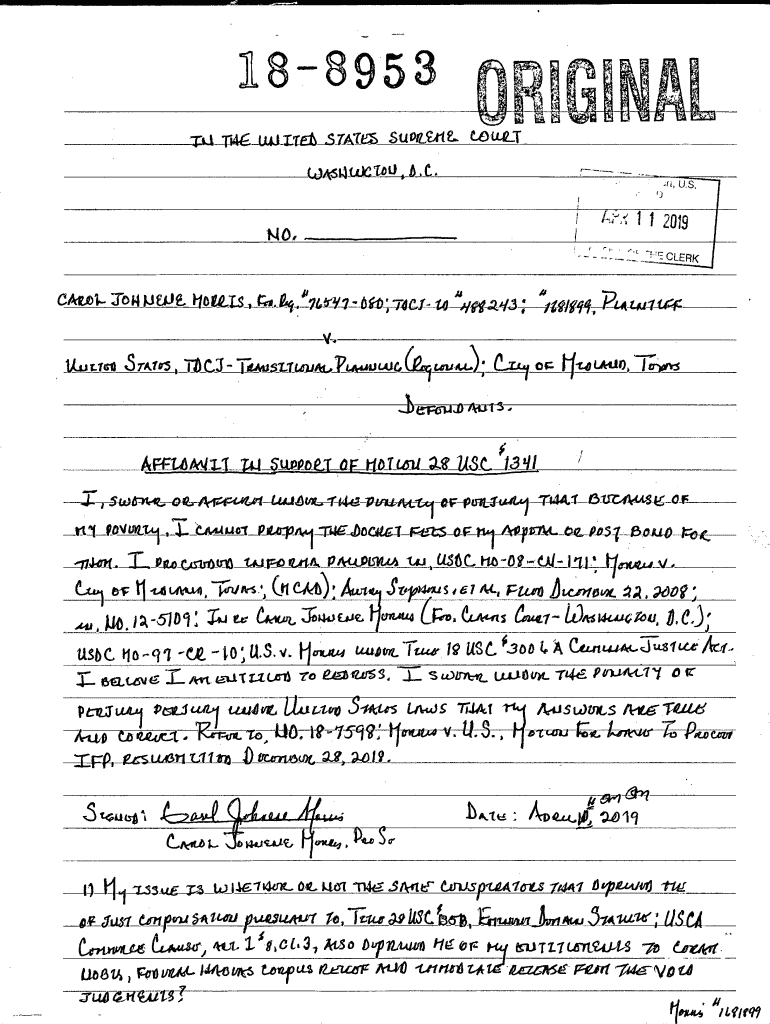 18-8953
ORIGINAL
IN THE UNITED STATES SUPREME COURT
WASHINGTON, D.C.
, U.S.
APR 11 2019
THE CLERK
NO.
CAROL JOHNENE MORRIS, FED. REG. #76547-080; TDCJ-ID #488243; #1681899, PLAINTIFF
V.
UNITED STATES, TDCJ-TRANSITIONAL PLANNING (REGIONAL); CITY OF MIDLAND, TEXAS
DEFENDANTS.
AFFIDAVIT IN SUPPORT OF MOTION 28 USC § 1341
I, SWEAR OR AFFIRM UNDER THE PENALTY OF PERJURY THAT BECAUSE OF
MY POVERTY, I CANNOT PREPAY THE DOCKET FEES OF MY APPEAL OR POST BOND FOR
THEM. I PROCEEDED INFORMA PAUPERIS IN, USDC MO-08-CV-171: MORRIS V.
CITY OF MIDLAND, TEXAS; (MCAD); STEPHENS, ET AL, FILED DECEMBER 22, 2008;
IN, NO. 12-5109: IN RE CAROL JOHNENE MORRIS (FED. CLAIMS COURT-WASHINGTON, D.C.);
USDC MO-97-CR-10; U.S. V. MORRIS UNDER TITLE 18 USC § 3006A CRIMINAL JUSTICE ACT.
I BELIEVE I AM ENTITLED TO REDRESS. I SWEAR UNDER THE PENALTY OF
PERJURY PERJURY UNDER UNITED STATES LAWS THAT MY ANSWERS ARE TRUE
AND CORRECT. REFER TO, NO. 18-7598: MORRIS V. U.S., MOTION FOR LEAVE TO PROCEED
IFP, RESUBMITTED DECEMBER 28, 2018.
SIGNED: Carol Johnene Morris DATE: APRIL 10, 2019
CAROL JOHNENE MORRIS, PRO SE
1) MY ISSUE IS WHETHER OR NOT THE SAME CONSPIRATORS THAT DEPRIVED ME
OF JUST COMPENSATION PURSUANT TO, TITLE 28 USC § EMINENT DOMAIN STATUTE; USCA
COMMERCE CLAUSE, ART. 1 § 8, CL. 3, ALSO DEPRIVED ME OF MY ENTITLEMENTS TO CORAM
NOBIS, FEDERAL HABEAS CORPUS RELIEF AND IMMEDIATE RELEASE FROM THE VOID
JUDGMENTS?
Morris #1681899